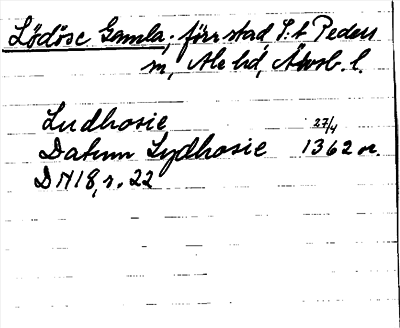 Lödöse Gamla, förr stad S:t Peders
sn, Ale hd, Älvsb. l.
Ludhosie 27/4
Datum Lydhosie 1362 or.
DN 18, s. 22